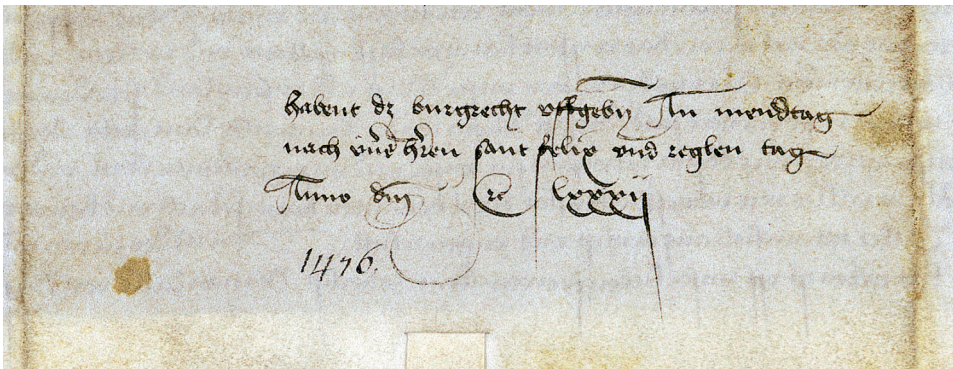 habent dz burgrecht uffgebn An mendtag
nach unser hren sant felix vnd reglen tag
Anno dm rc lxxxij
1476.